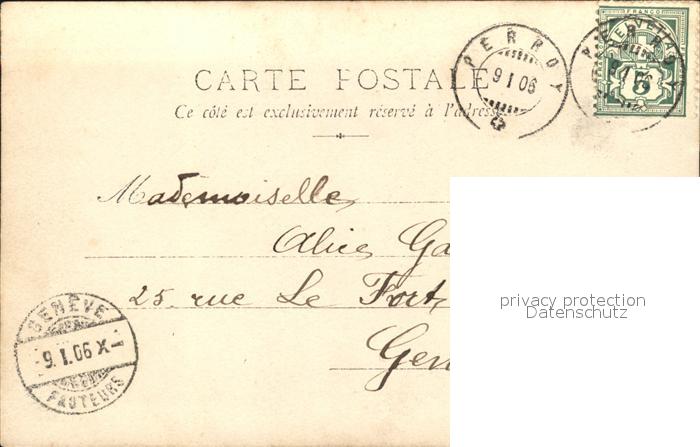 PERROY
9 I 06
PERROY
9 I 06
FRANCO
HELVETIA
5
CARTE POSTALE
Ce côté est exclusivement réservé à l'adresse
Mademoiselle
Alice Ga
25 rue Le Fort,
Gen
GENÈVE
-9.I.06 X-
FACTEURS
privacy protection
Datenschutz